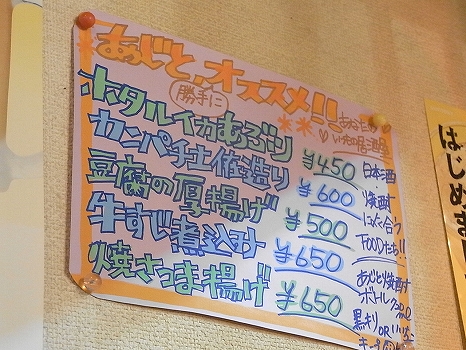 あじと、オススメ!!
勝手に
あなたの♡
♡いその居酒屋
ホタルイカあぶり ¥450
カンパチ土佐造り ¥600
豆腐の厚揚げ ¥500
牛すじ煮込み ¥650
焼さつま揚げ ¥650
日本酒
焼酎に
よく合う
FOODたち!!
あじと焼酎
ボトル
黒キリ OR いいちこ
はじめま